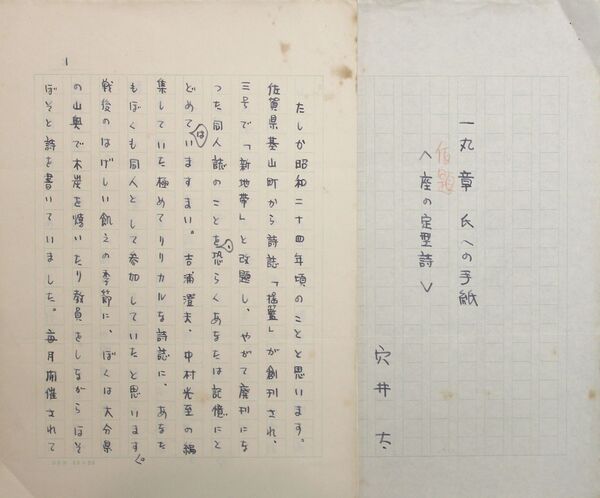 一丸章氏への手紙
仮題
〈座の定型詩〉
穴井太
1
たしか昭和二十四年頃のことと思います。
佐賀県基山町から詩誌「揺籃」が創刊され、
三号で「新地帯」と改題し、やがて廃刊にな
った同人誌のことを、恐らくあなたは記憶にと
どめてはいますまい。吉浦澄夫、中村光至の編
集していた極めてリリカルな詩誌に、あなた
もぼくも同人として参加していたと思います。
戦後のはげしい飢えの季節に、ぼくは大分県
の山奥で木炭を焼いたり教員をしながらぼそ
ぼそと詩を書いていました。毎月開催されて